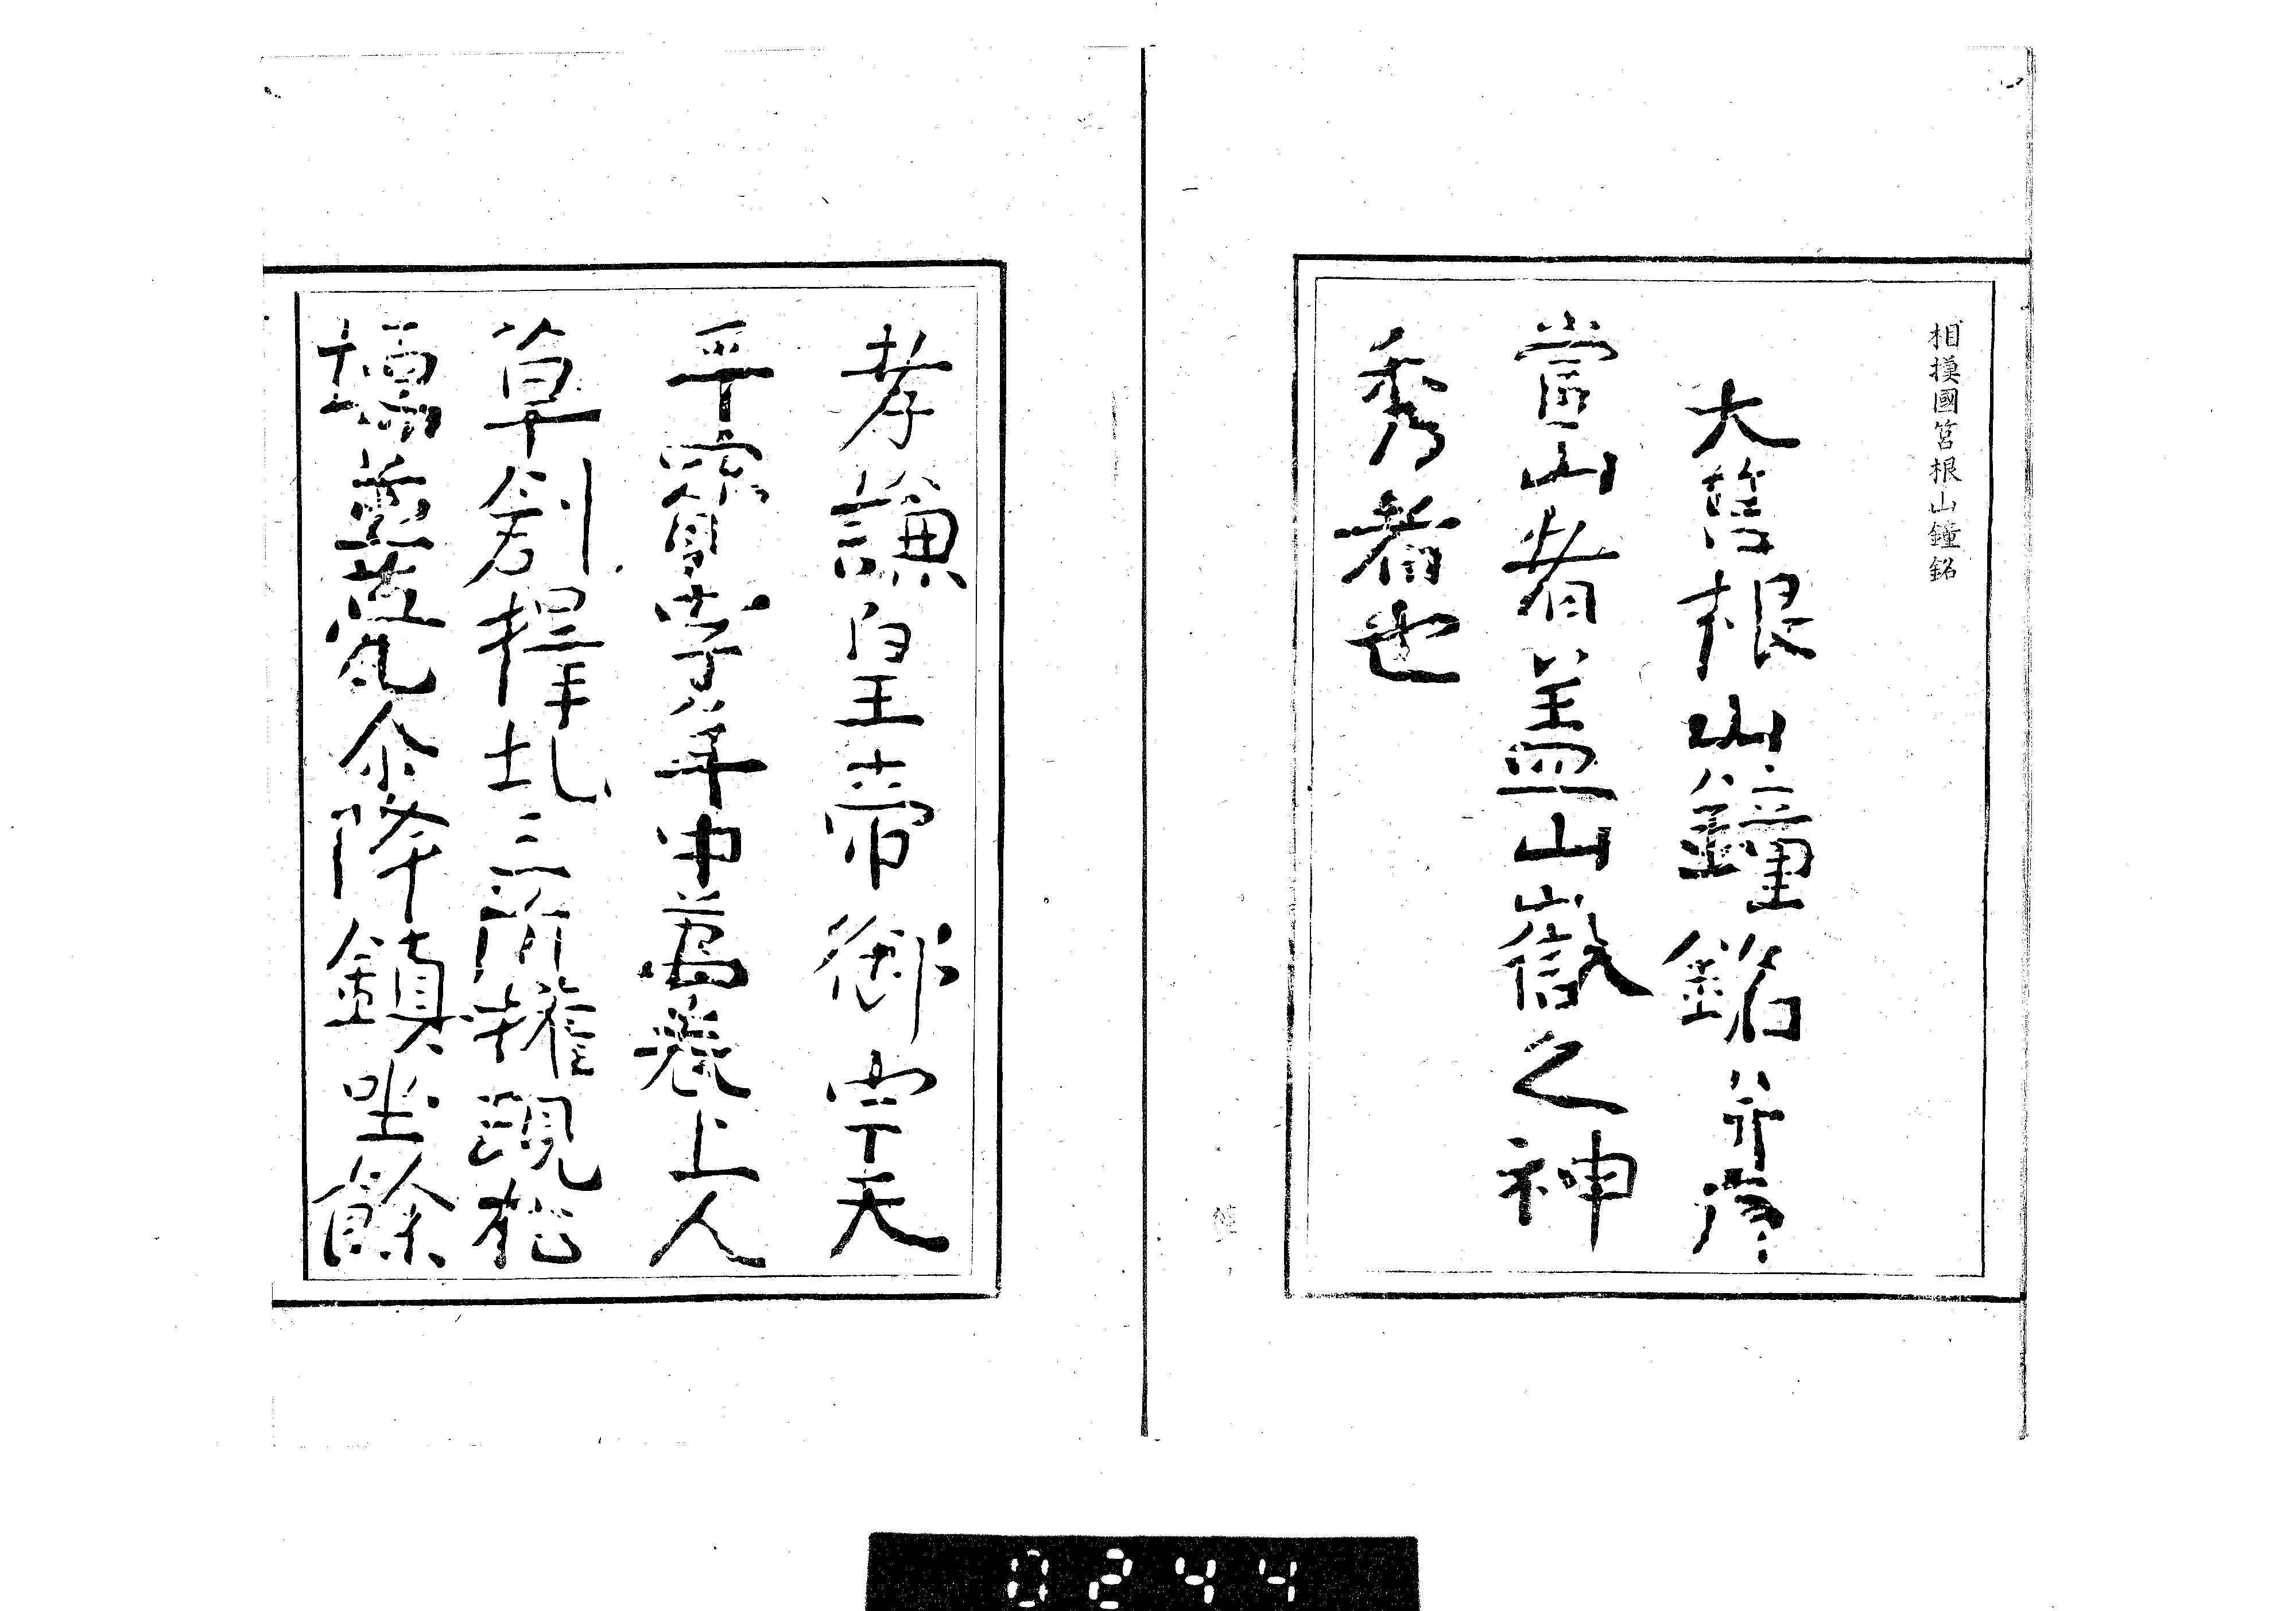 相摸國筥根山鐘銘
大筥根山鐘銘并序
當山者盖山嶽之神
秀者也
孝謙皇帝御宇天
平寳字年中萬巻上人
草創擇
三所權現
壇
降鎮坐餘
0244